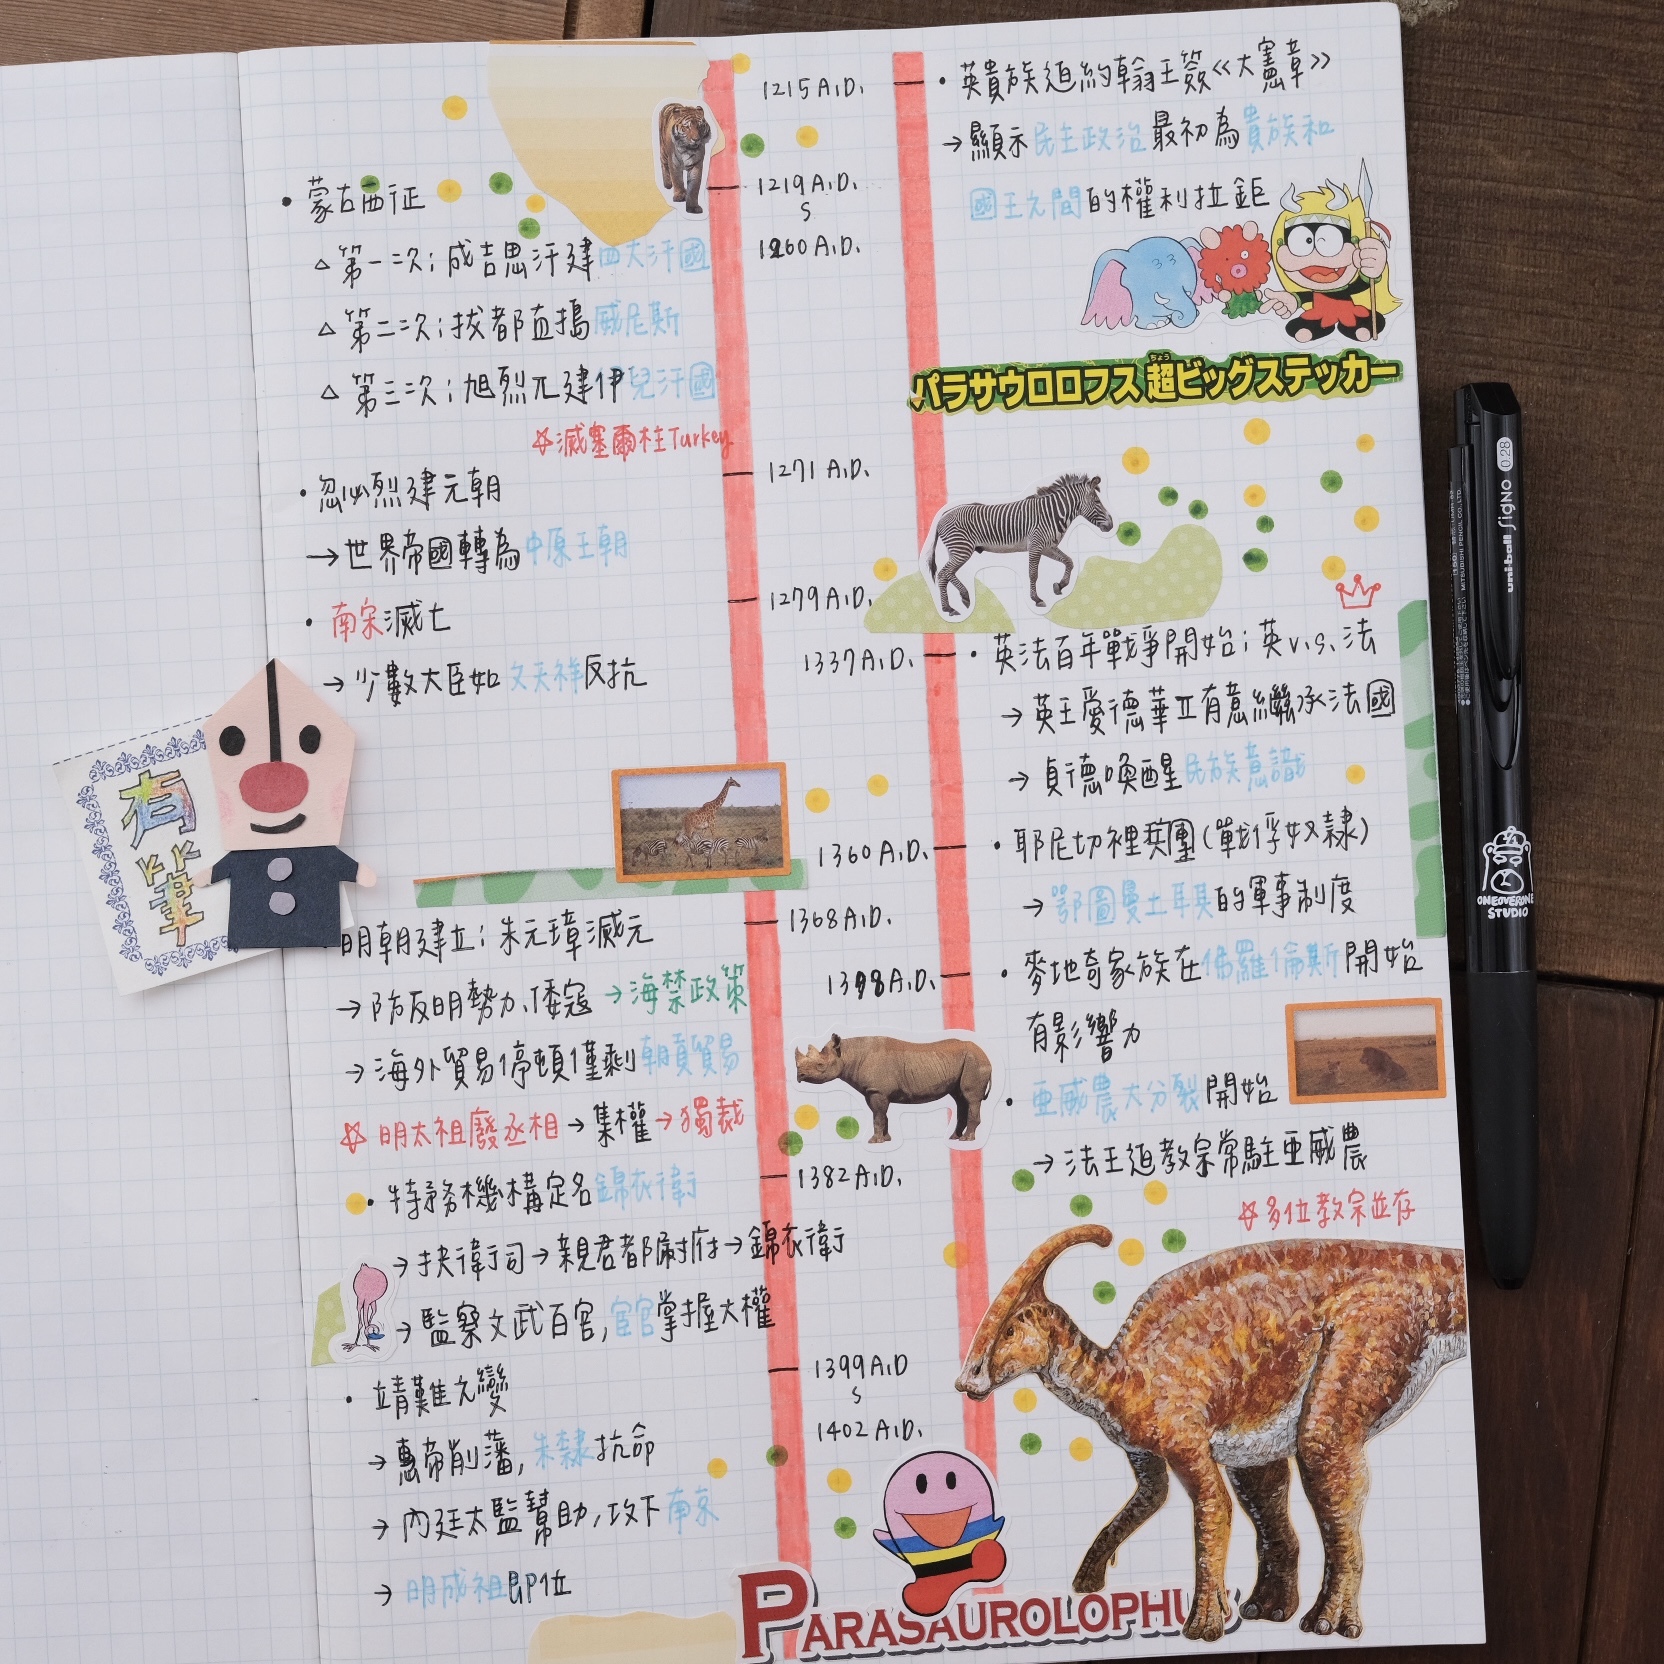 1215 A.D.
• 英貴族迫約翰王簽《大憲章》
→ 顯示民主政治最初為貴族和
國王之間的權利拉鉅
1219 A.D.
S
1260 A.D.
• 蒙古西征
△ 第一次:成吉思汗建四大汗國
△ 第二次:拔都直搗威尼斯
△ 第三次:旭烈兀建伊兒汗國
☆滅塞爾柱Turkey
パラサウロロフス超ビッグステッカー
ちょう
1271 A.D.
• 忽必烈建元朝
→ 世界帝國轉為中原王朝
1279 A.D.
• 南宋滅亡
→ 少數大臣如文天祥反抗
1337 A.D.
• 英法百年戰爭開始:英v.s.法
→ 英王愛德華立有意繼承法國
→ 貞德喚醒民族意識
有筆
1360 A.D.
• 耶尼切裡兵團(戰俘奴隸)
→ 鄂圖曼土耳其的軍事制度
1368 A.D.
明朝建立:朱元璋滅元
→ 防反明勢力、倭寇→海禁政策
→ 海外貿易停頓僅剩朝貢貿易
☆ 明太祖廢丞相→集權→獨裁
A.D.
• 麥地奇家族在佛羅倫斯開始
有影響力
• 亞威農大分裂開始
→ 法王迫教宗常駐亞威農
☆多位教宗並存
1382 A.D.
• 特務機構定名錦衣衛
→ 拱衛司→親君都尉府→錦衣衛
→ 監察文武百官,宦官掌握大權
1399 A.D
S
1402 A.D.
• 靖難之變
→ 惠帝削藩,朱棣抗命
→ 內廷太監幫助,攻下南京
→ 明成祖即位
PARASAUROLOPHUS
uni-ball SigNO 0.28
MITSUBISHI PENCIL CO., LTD.
ONEOVERONE
STUDIO